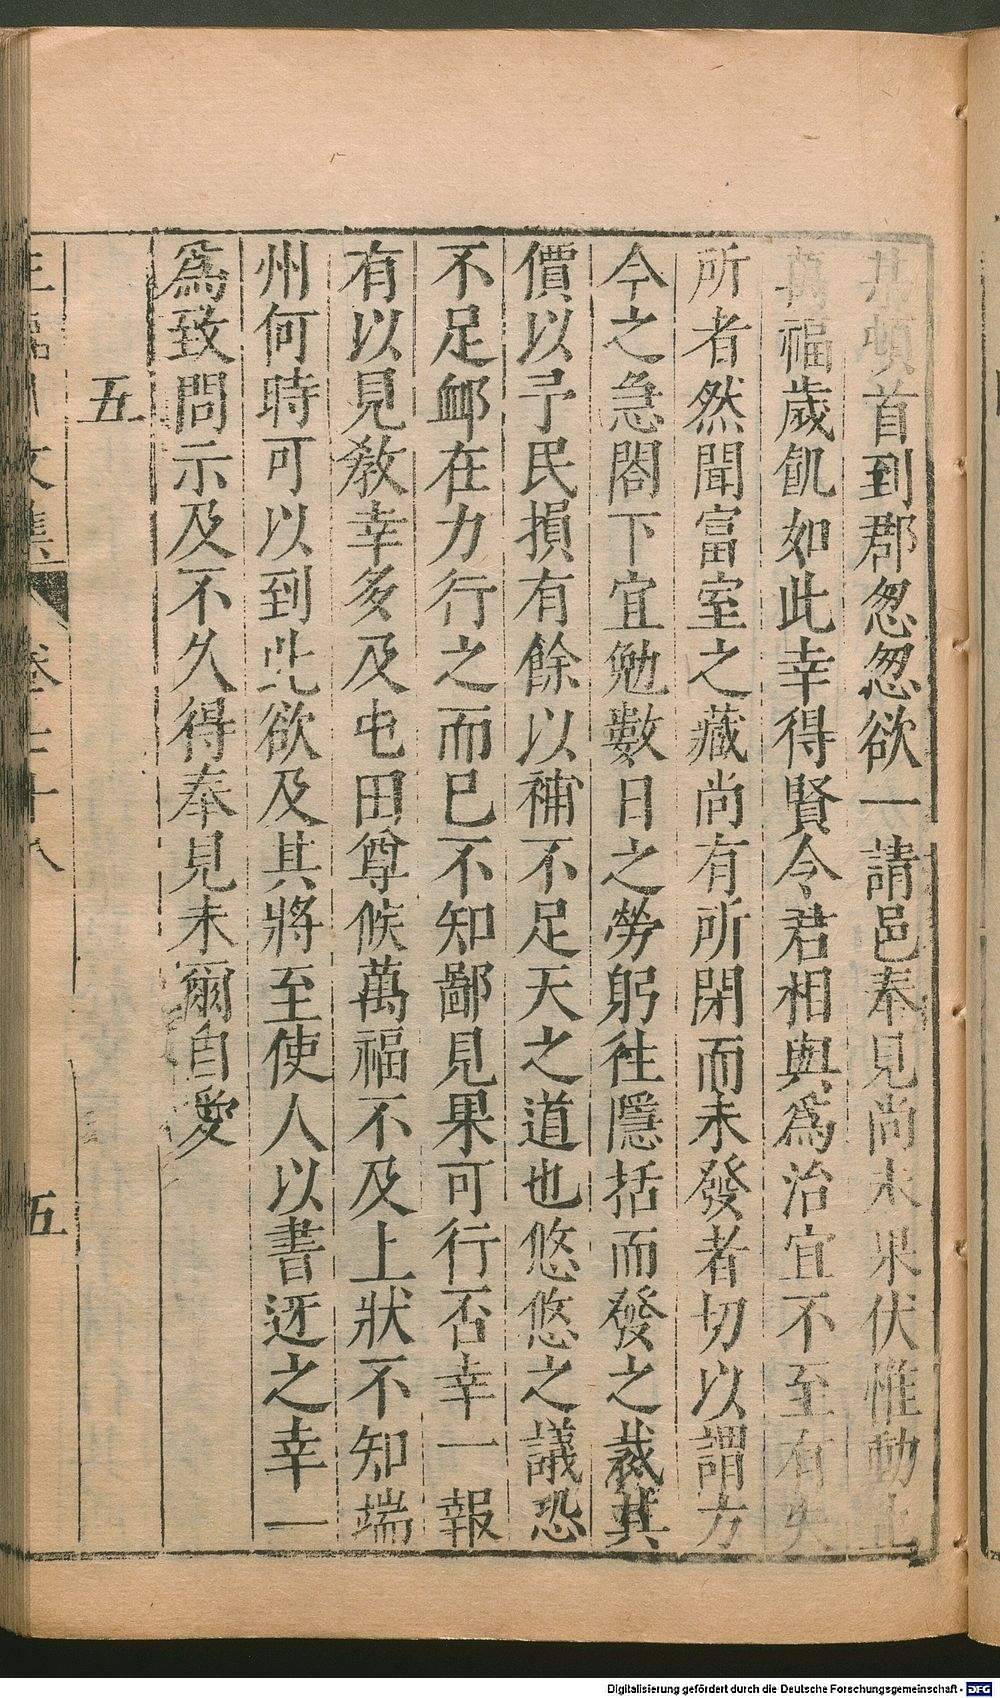 某頓首到郡怱怱欲一請邑奉見尚未果伏惟動止
萬福歲飢如此幸得賢令君相與爲治宜不至有失
所者然聞富室之藏尚有所閉而未發者切以謂方
今之急閤下宜勉數日之勞躬往隱括而發之裁其
價以予民損有餘以補不足天之道也悠悠之議恐
不足䘏在力行之而已不知鄙見果可行否幸一報
有以見敎幸多及屯田尊候萬福不及上狀不知端
州何時可以到此欲及其將至使人以書迓之幸一
爲致問示及不久得奉見未爾自愛
五
王臨川文集 卷七十八 五
Digitalisierung gefördert durch die Deutsche Forschungsgemeinschaft - DFG